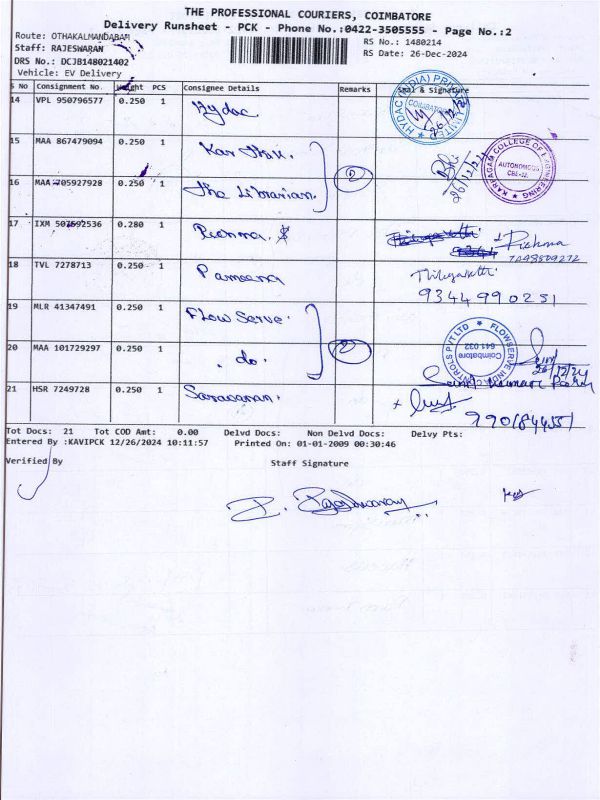 THE PROFESSIONAL COURIERS, COIMBATORE
Delivery Runsheet - PCK - Phone No.:0422-3505555 - Page No.:2
Route: OTHAKALMANDABAM
RS No.: 1480214
Staff: RAJESWARAN
RS Date: 26-Dec-2024
DRS No.: DCJB148021402
Vehicle: EV Delivery
S No Consignment No. Weight PCS Consignee Details Remarks Seal & Signature
14 VPL 950796577 0.250 1 Hydac
HYDAC (INDIA) PRIVATE LIMITED
COIMBATORE
26/12/24
15 MAA 867479094 0.250 1
KARPAGAM COLLEGE OF ENGINEERING
AUTONOMOUS
CBE-32.
26/12/24
16 MAA 705927928 0.250 1 The Librarian. 2
17 IXM 507592536 0.280 1
18 TVL 7278713 0.250 1 Pameena
9344990251
19 MLR 41347491 0.250 1 Flow Serve.
FLOWSERVE INDIA CONTROLS PVT LTD
Coimbatore
641 032
20 MAA 101729297 0.250 1 do. 2
26/12/24
21 HSR 7249728 0.250 1 Saravanan.
Tot Docs: 21 Tot COD Amt: 0.00 Delvd Docs: Non Delvd Docs: Delvy Pts:
Entered By :KAVIPCK 12/26/2024 10:11:57 Printed On: 01-01-2009 00:30:46
Verified By Staff Signature